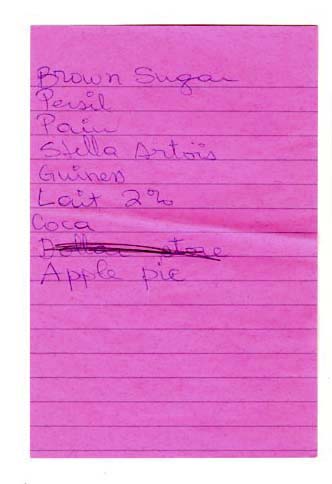 Brown Sugar
Persil
Pain
Stella Artois
Guiness
Lait 2%
Coca
Dollar store
Apple pie